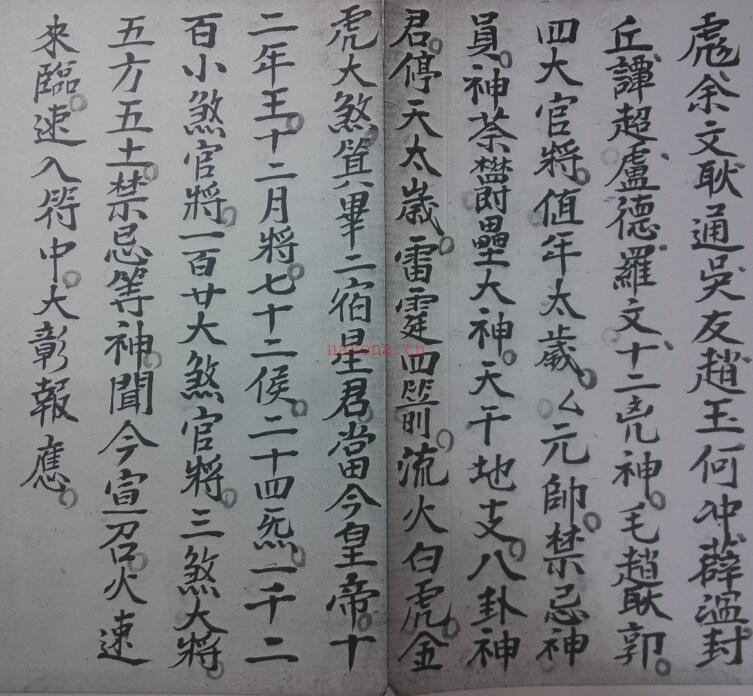 彪余文耿通吳友趙玉何冲薛溫封
丘譚超盧德羅文十二兇神。毛趙耿郭。
四大官將。值年太歲。厶元帥。禁忌神
員。神荼欝壘大神。天干地支。八卦神
君。停天太歲。雷霆四箭。流火白虎。金
虎大煞。箕畢二宿星君。當今皇帝。十
二年王。十二月將。七十二候。二十四炁。一千二
百小煞官將。一百廿大煞官將。三煞大將。
五方五土。禁忌等神。聞今宣召。火速
來臨。速入符中。大彰報應。
nayona.cn